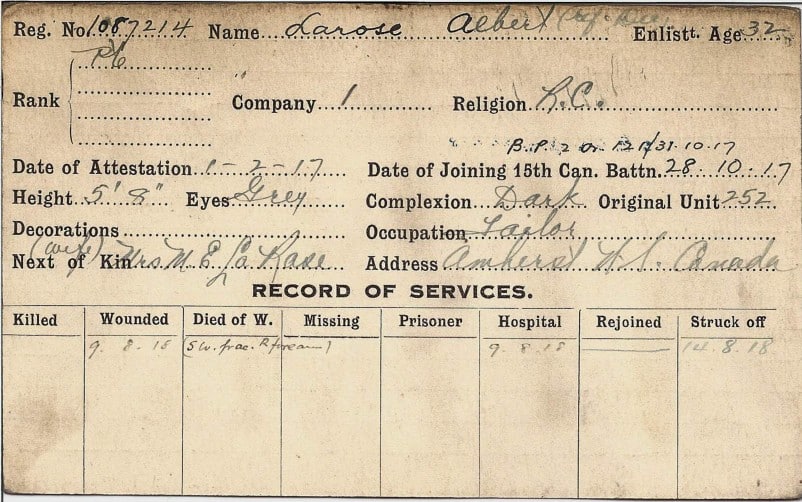 Reg. No. 1087214 Name Larose Albert Enlistt. Age 32
Pte
Rank Company 1 Religion R.C.
B.P. 2 Or. 121 d/31.10.17
Date of Attestation 1-2-17 Date of Joining 15th Can. Battn. 28.10.17
Height 5' 8" Eyes Grey Complexion Dark Original Unit 252
Decorations Occupation Tailor
(wife)
Next of Kin Mrs M E La Rose Address Amherst N.S. Canada
RECORD OF SERVICES.
Killed Wounded Died of W. Missing Prisoner Hospital Rejoined Struck off
9.8.18 (SW. frac. R forearm) 9.8.18 14.8.18